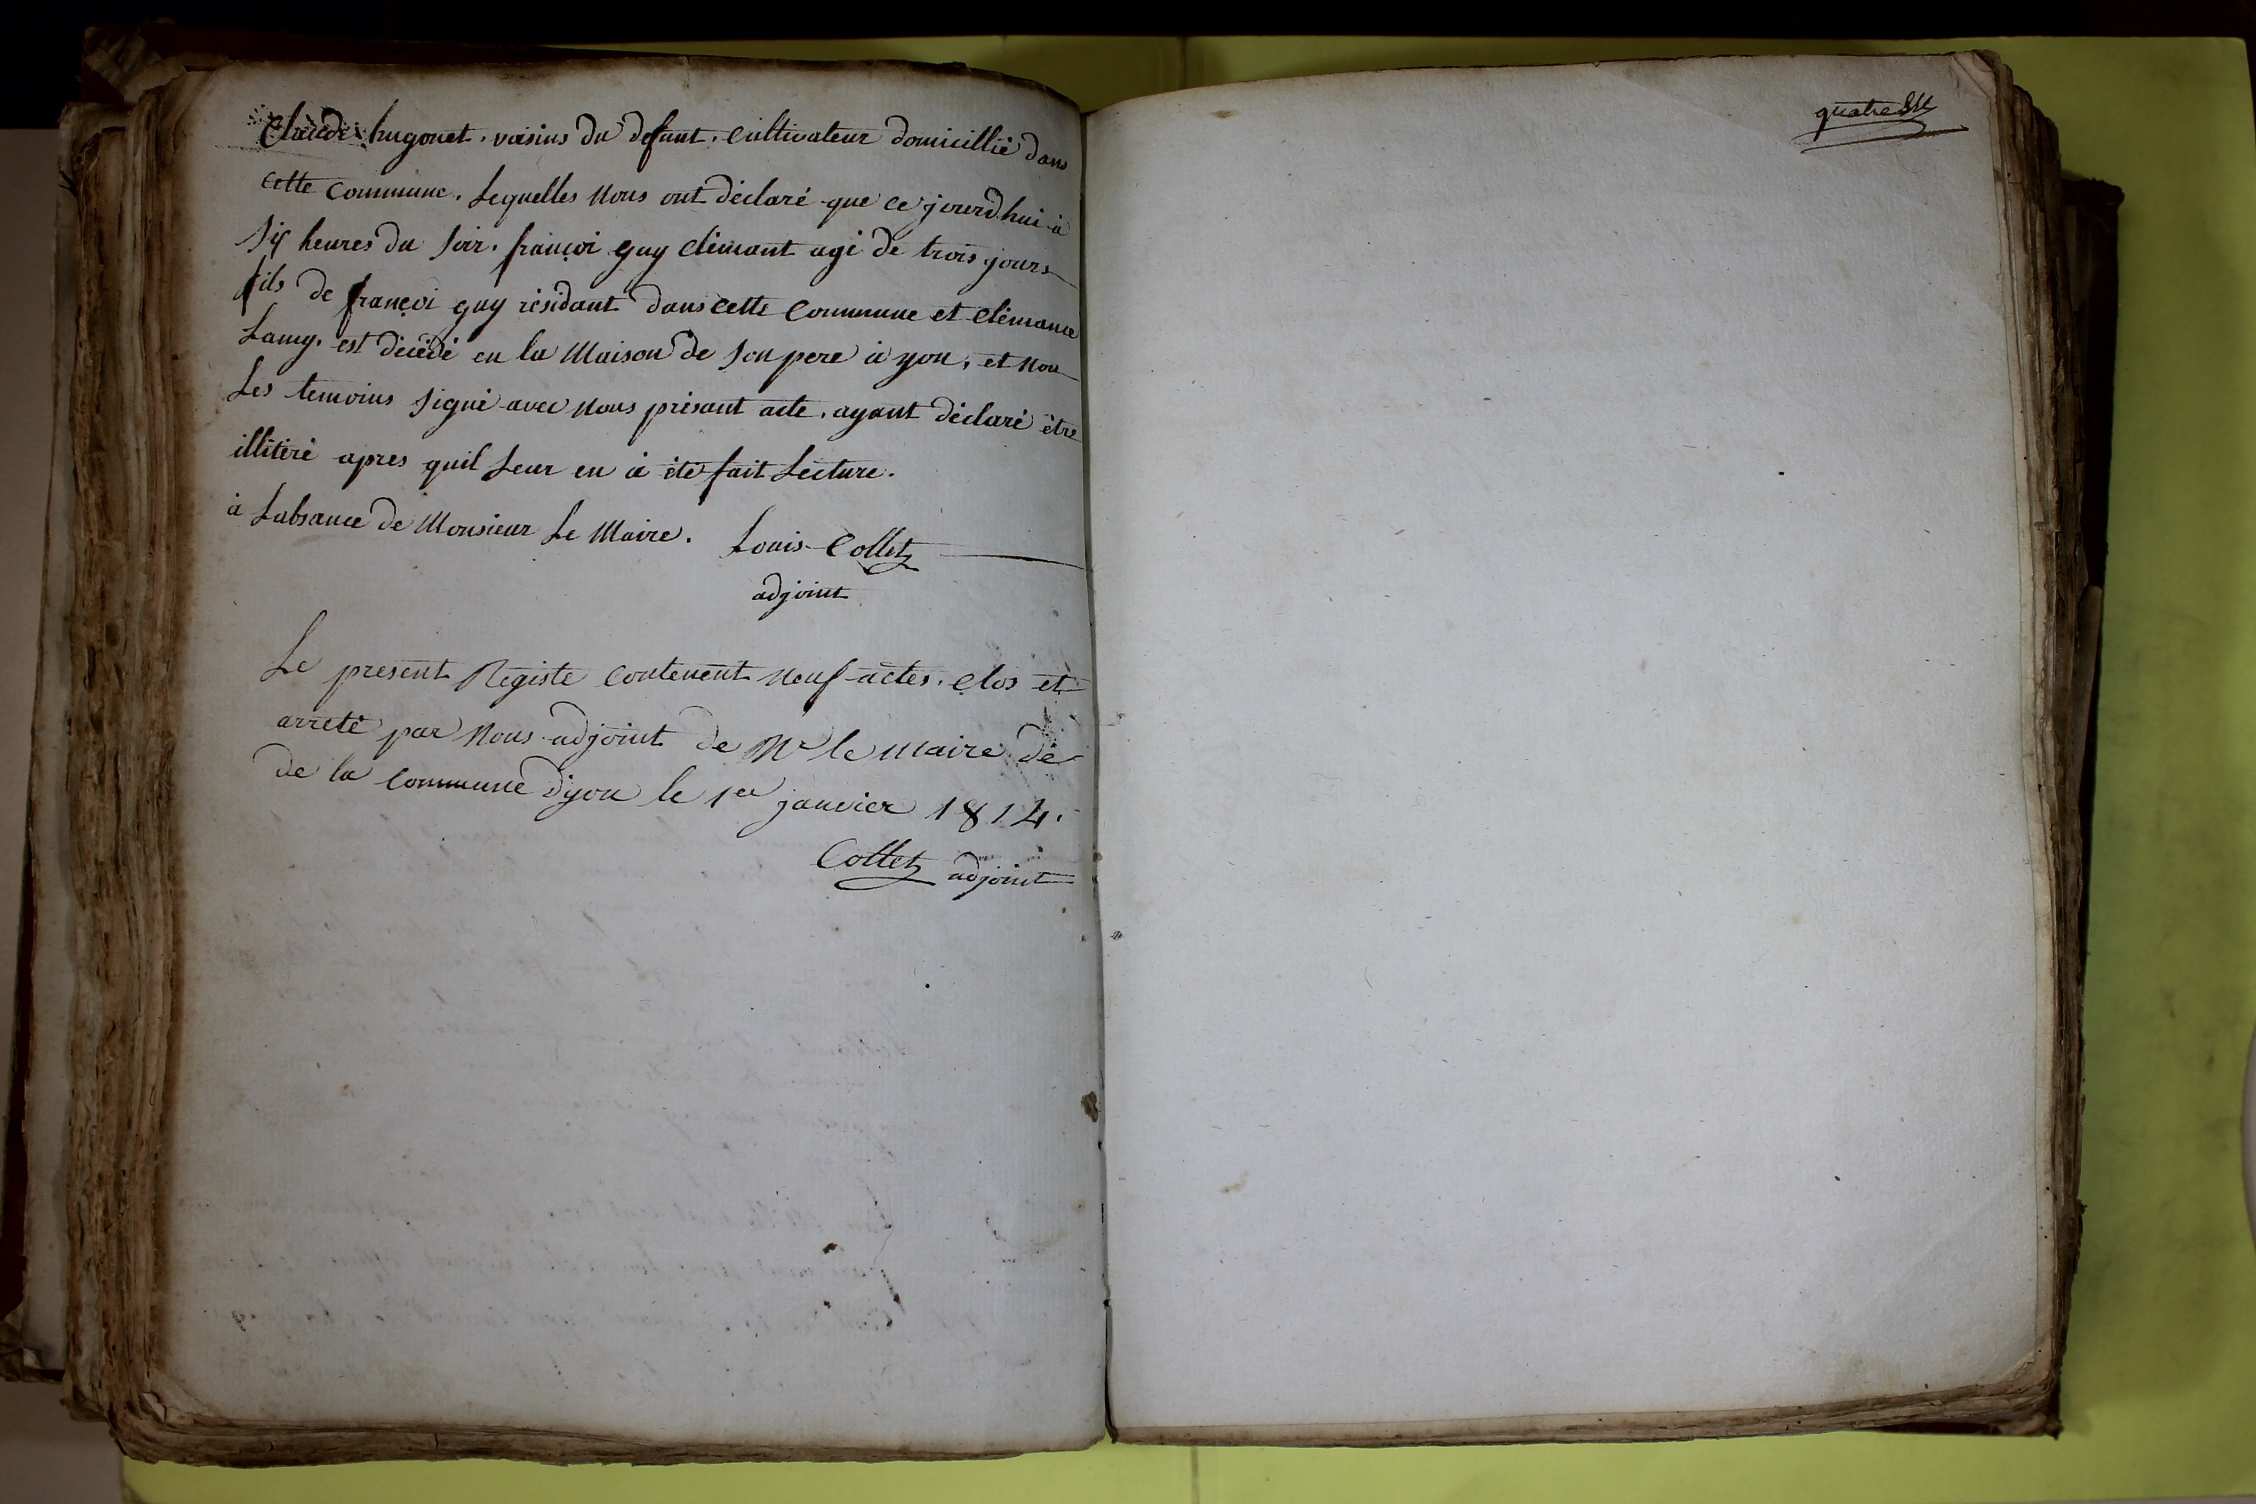 Claude hugonet, voisins du défunt, cultivateur domicillié dans
cette commune. Lequelles nous ont déclaré que ce jourd'hui à
six heures du soir, françoi guy clémant agé de trois jours
fils de françoi guy résidant dans cette commune et clémance
Lamy, est décédé en la Maison de son pere à yon, et non
Les temoins signé avec nous présant acte, ayant déclaré être
illitéré apres quil Leur en à été fait Lecture.
à Labsance de Monsieur Le Maire. Louis Collet
adjoint
Le present Registe contenent neuf actes, clos et
arreté par nous adjoint de Mr le maire de
de la commune d'yon le 1er janvier 1814.
Collet adjoint
quatre